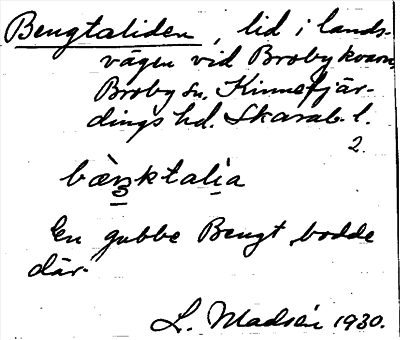 Bengtaliden, lid i lands-
vägen vid Broby kvarn,
Broby sn. Kinnefjär-
dings hd. Skarab. l.
2.
bæ̀ŋktalia
En gubbe Bengt bodde
där.
L. Madsén 1930.